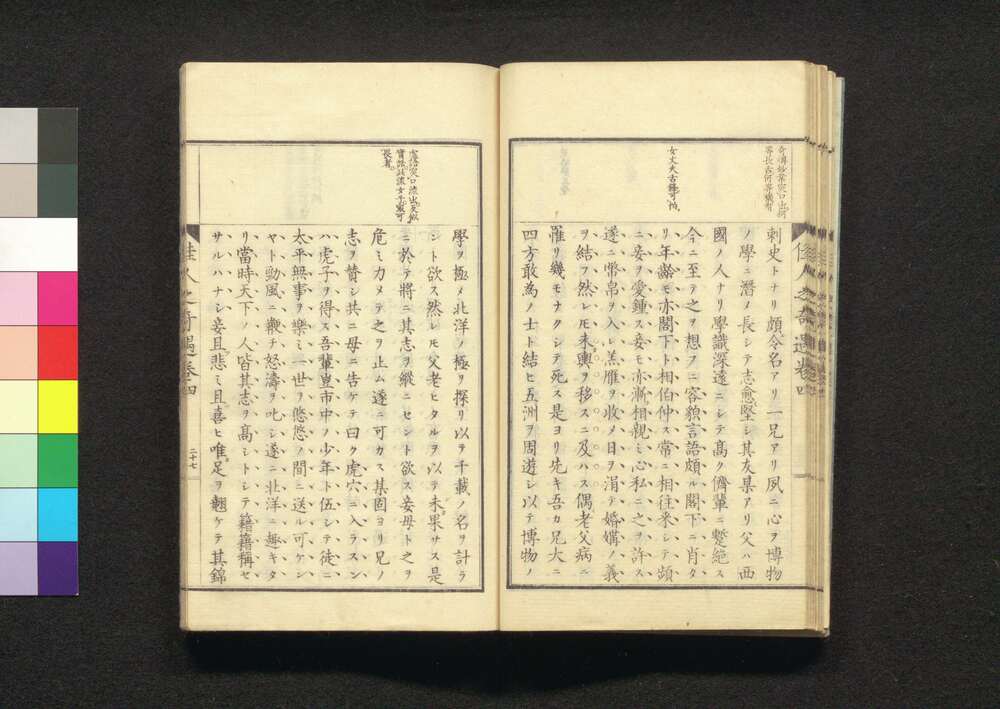 刺史トナリ頗令名アリ一兄アリ夙ニ心ヲ博物
ノ學ニ潛ノ長シテ志愈堅シ其友某アリ父ハ西
國ノ人ナリ學識深遠ニシテ高ク儕輩ニ蹩絶ス
今ニ至テ之ヲ想フニ容貌言語頗ル閣下ニ肖タ
リ年齡モ亦閣下ト相伯仲ス常ニ相往来シテ頻
ニ妾ヲ愛鍾ス妾モ亦漸相親ミ心私ニ之ヲ許ス
遂ニ幣帛ヲ入レ羔雁ヲ收メ日ヲ涓テ婚媾ノ義
ヲ結フ然レ𪜈未輿ヲ移スニ及ハス偶老父病ニ
罹リ幾モナクシテ死ス是ヨリ先キ吾カ兄大ニ
四方敢為ノ士ト結ヒ五洲ヲ周遊シ以テ博物ノ
女丈夫古鍾可怕
佳人之奇遇卷四
學ヲ極メ北洋ノ極リ探リ以テ千載ノ名ヲ計ラ
ント欲ス然レ𪜈父老ヒタルヲ以テ未果サス是
ニ於テ將ニ其志ヲ縱ニセント欲ス妾母ト之ヲ
危ミ力メテ之ヲ止ム遂ニ可カス某固ヨリ兄ノ
志ヲ賛シ共ニ母ニ告ケテ曰ク虎穴ニ入ラスン
ハ虎子ヲ得ス吾輩豈市中ノ少年ト伍シテ徒ニ
太平無事ヲ樂ミ一世ヲ悠悠ノ間ニ送ル可ケン
ヤト勁風ニ鞭チ怒濤ヲ叱シ遂ニ北洋ニ趣キタ
リ當時天下ノ人皆其志ヲ高シトシテ籍籍稱セ
サルハナシ妾且悲ミ且喜ヒ唯足ヲ翹ケテ其錦
佳人之奇遇卷四
二十七